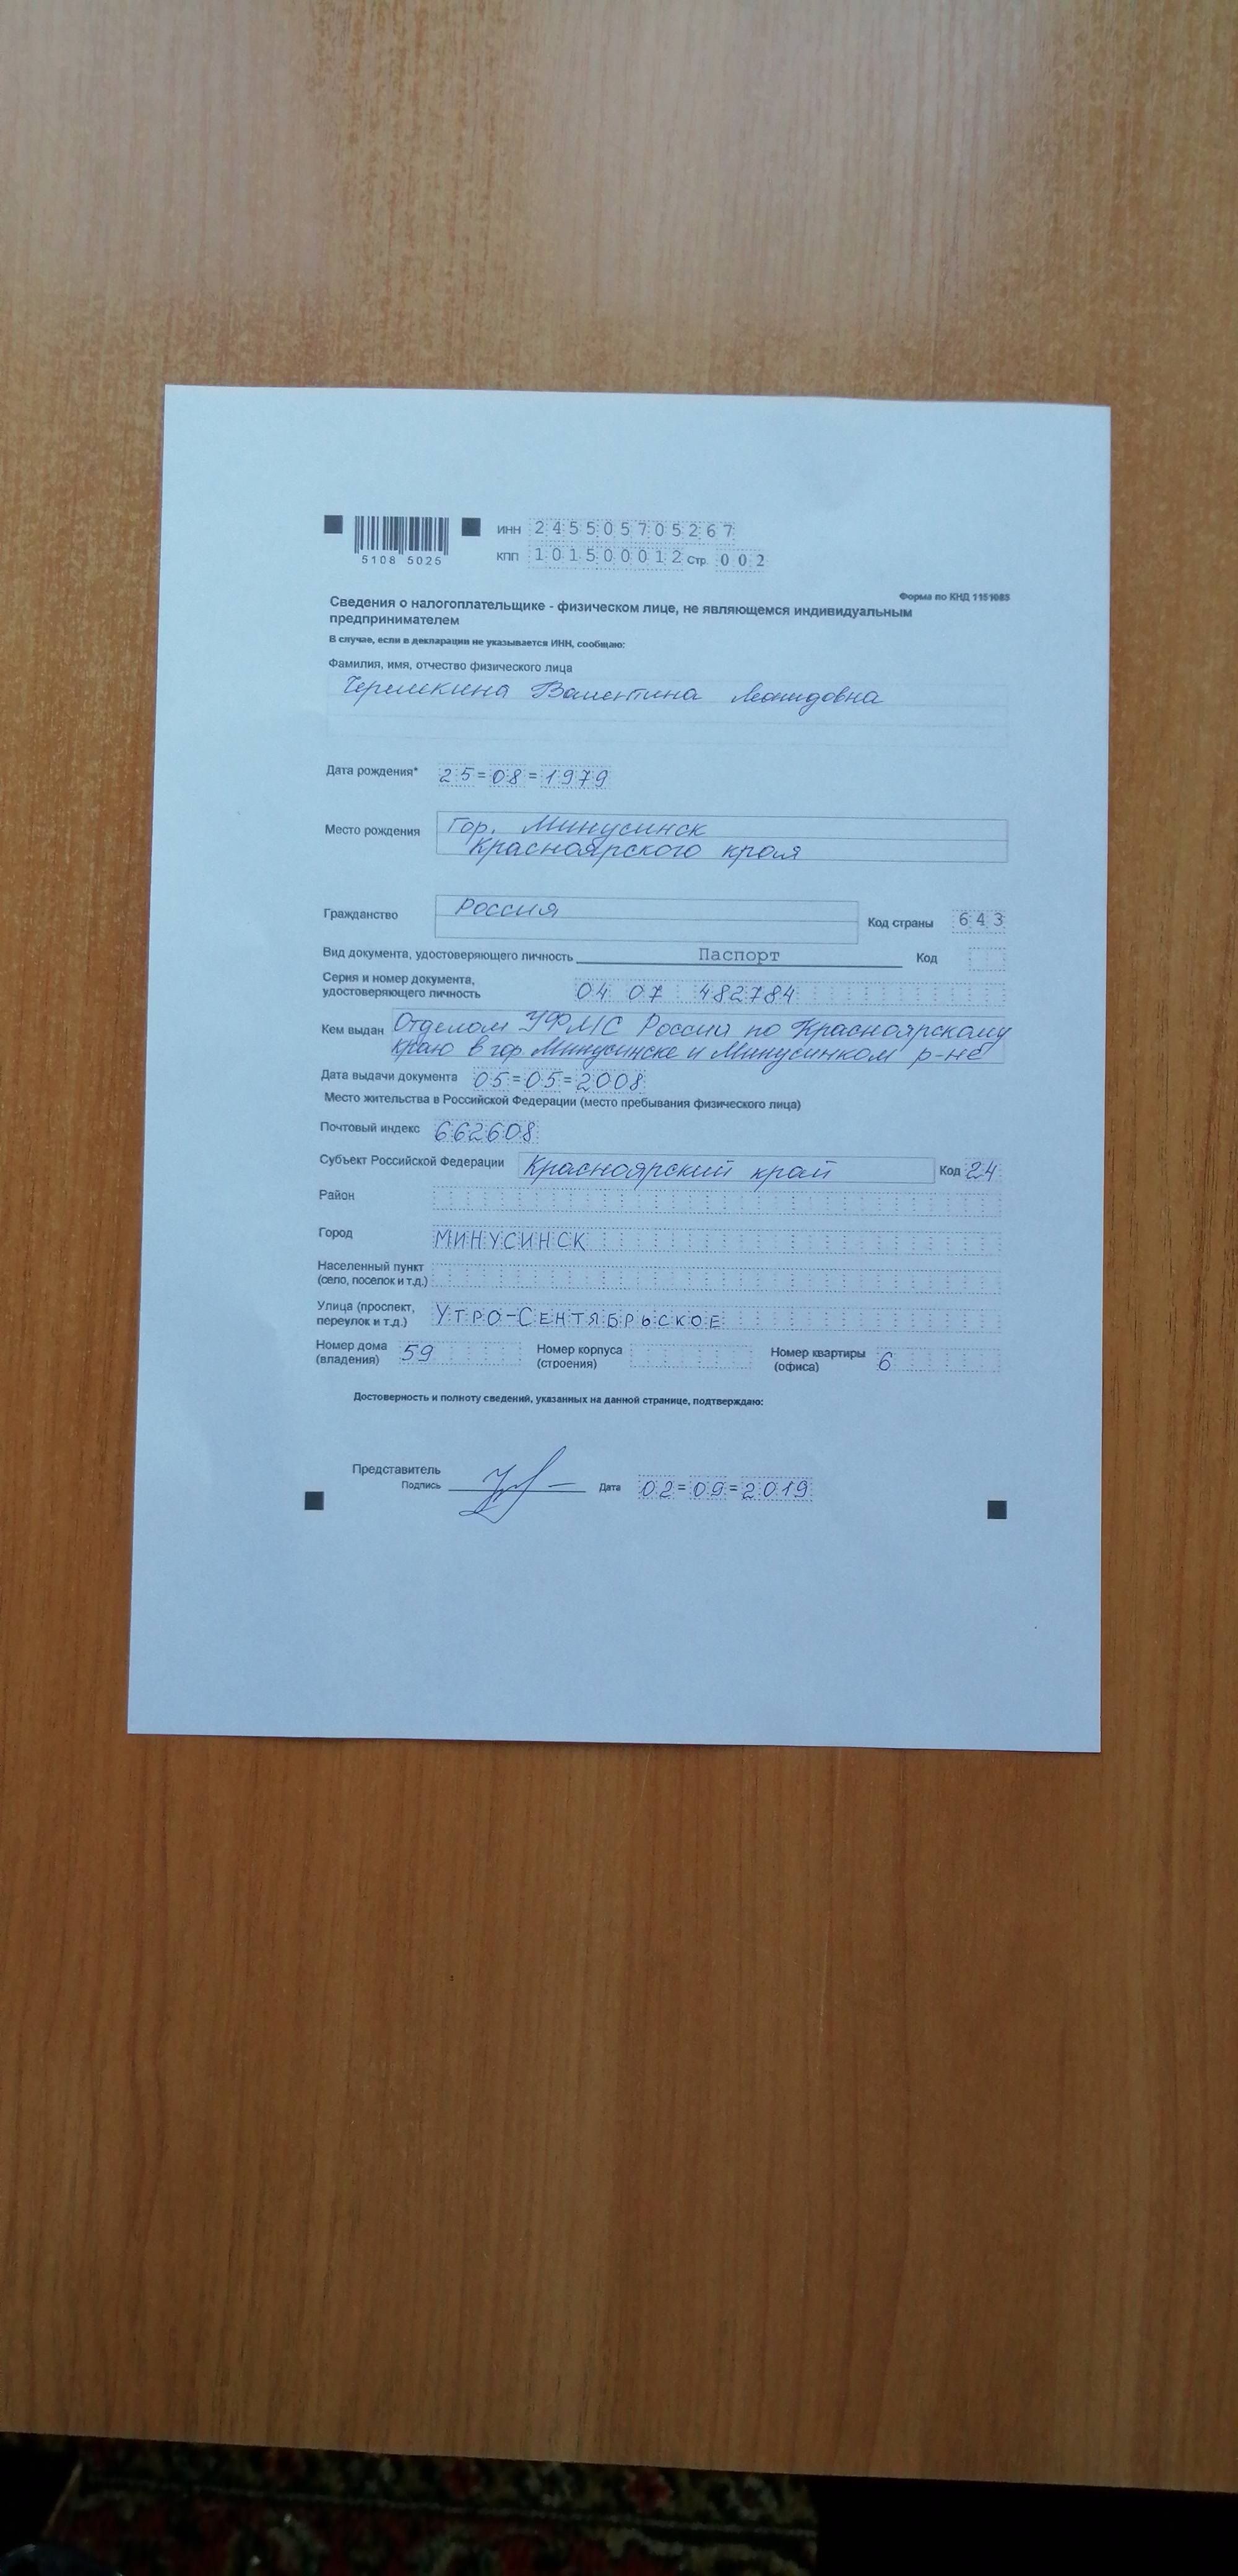 5108 5025
ИНН 245505705267
КПП 101500012 Стр. 002
Форма по КНД 1151085
Сведения о налогоплательщике - физическом лице, не являющемся индивидуальным
предпринимателем
В случае, если в декларации не указывается ИНН, сообщаю:
Фамилия, имя, отчество физического лица
Черемкина Валентина Леонидовна
Дата рождения* 25=08=1979
Место рождения Гор. Минусинск
Красноярского края
Гражданство Россия Код страны 643
Вид документа, удостоверяющего личность Паспорт Код
Серия и номер документа,
удостоверяющего личность 04 07 482784
Кем выдан Отделом УФМС России по Красноярскому
краю в гор. Минусинске и Минусинком р-не
Дата выдачи документа 05=05=2008
Место жительства в Российской Федерации (место пребывания физического лица)
Почтовый индекс 662608
Субъект Российской Федерации Красноярский край Код 24
Район
Город МИНУСИНСК
Населенный пункт
(село, поселок и т.д.)
Улица (проспект,
переулок и т.д.) УТРО-СЕНТЯБРЬСКОЕ
Номер дома
(владения) 59 Номер корпуса
(строения) Номер квартиры
(офиса) 6
Достоверность и полноту сведений, указанных на данной странице, подтверждаю:
Представитель
Подпись Дата 02=09=2019